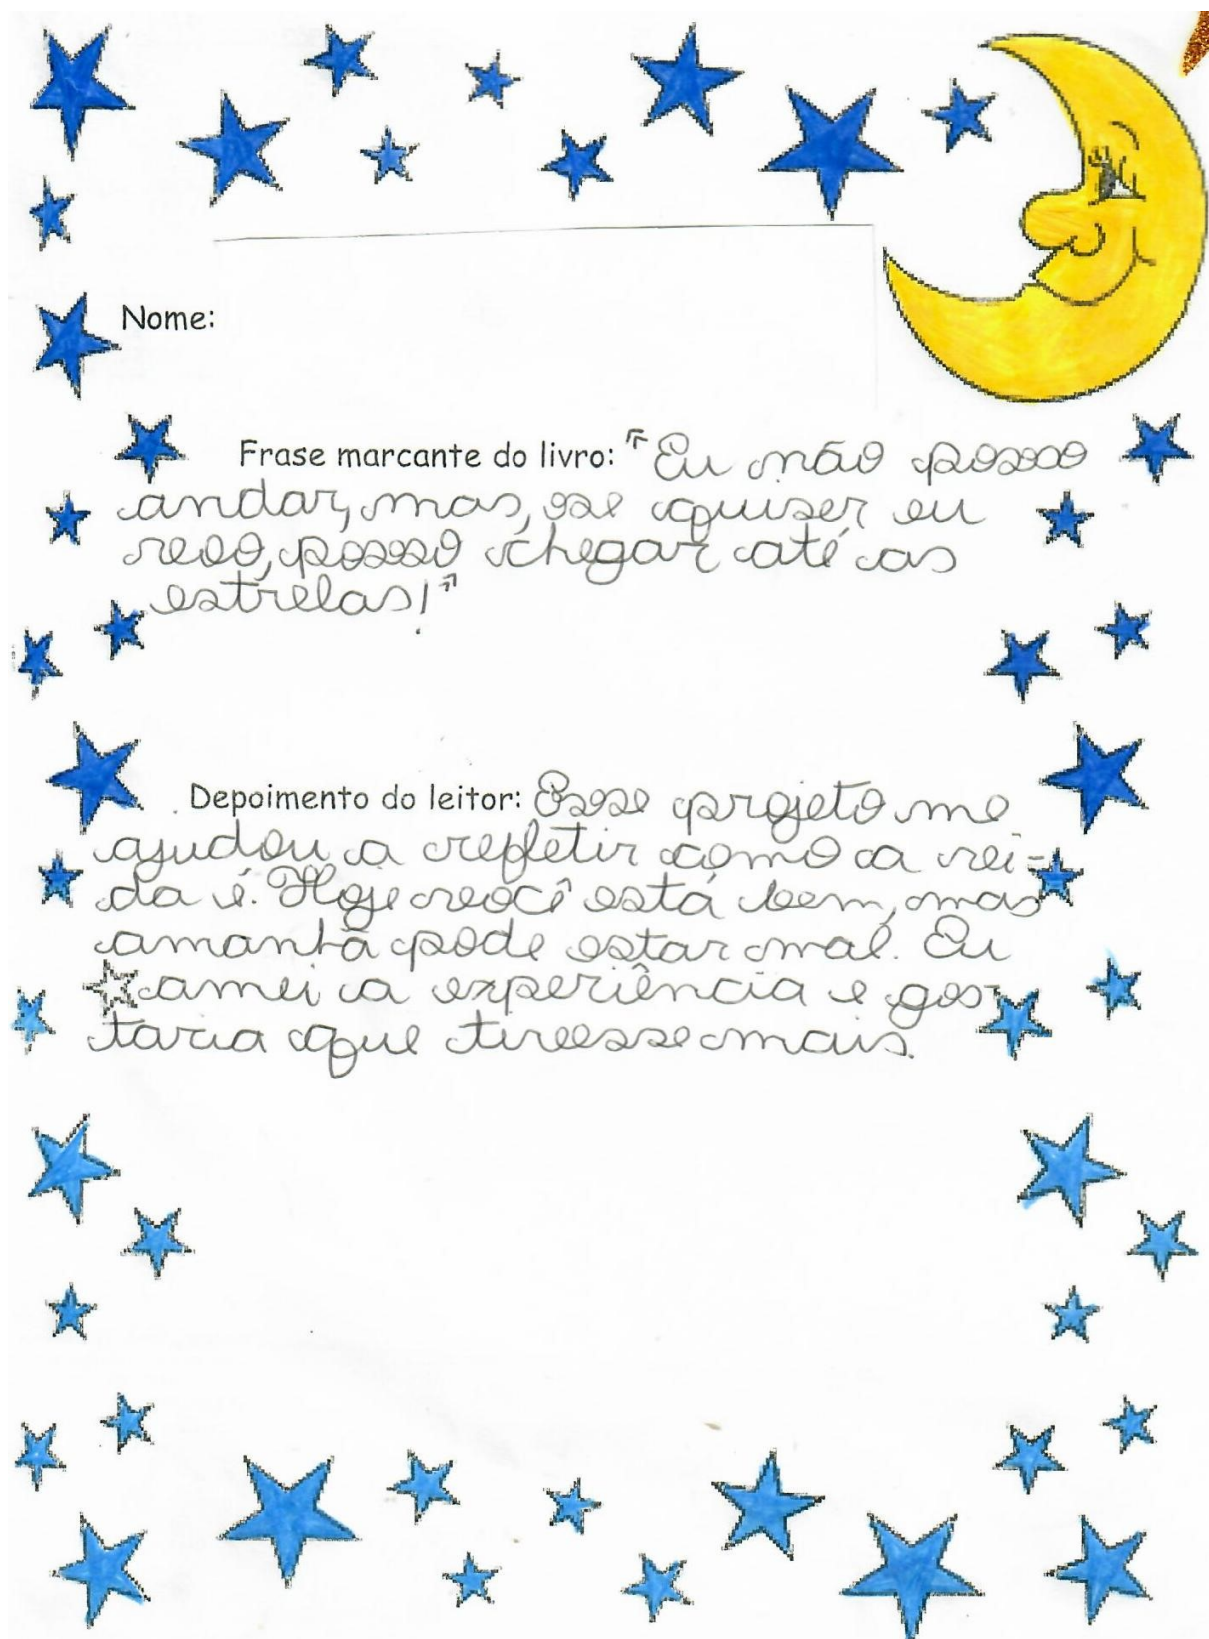 Nome:
Frase marcante do livro: "Eu não posso
andar, mas, se quiser eu
voo, posso chegar até as
estrelas!"
Depoimento do leitor: Esse projeto me
ajudou a refletir como a vi-
da é. Hoje você está bem, mas
amanhã pode estar mal. Eu
amei a experiência e gos
taria que tivesse mais.